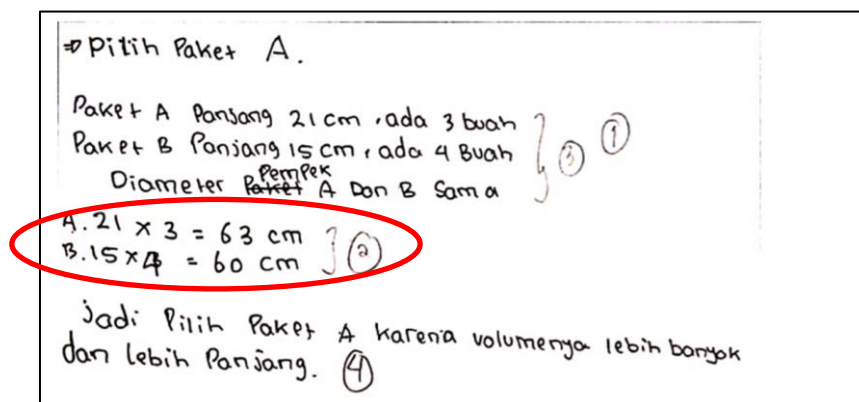 ⇒ Pilih Paket A.
Paket A Panjang 21 cm, ada 3 buah
Paket B Panjang 15 cm, ada 4 Buah
③ ①
Pempek
Diameter Paket A Dan B Sama
A. 21 x 3 = 63 cm
B. 15 x 4 = 60 cm
②
Jadi Pilih Paket A karena volumenya lebih banyak
dan lebih Panjang. ④